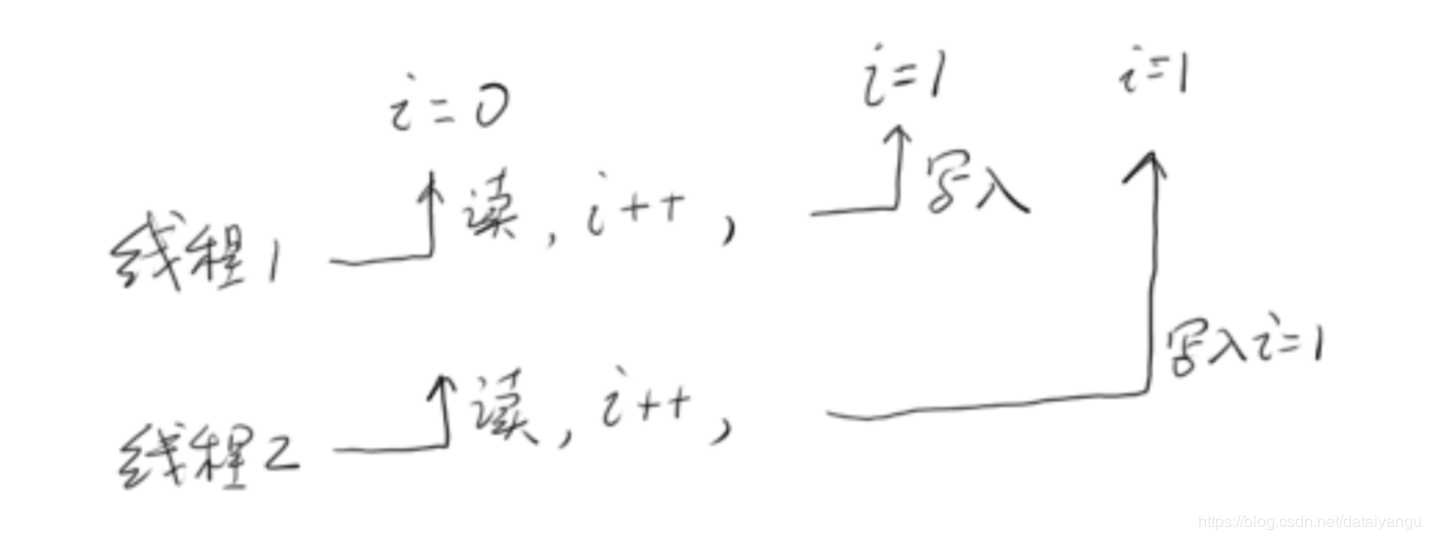 i=0 i=1 i=1
线程1 读，i++， 写入
线程2 读，i++， 写入i=1
https://blog.csdn.net/dataiyangu